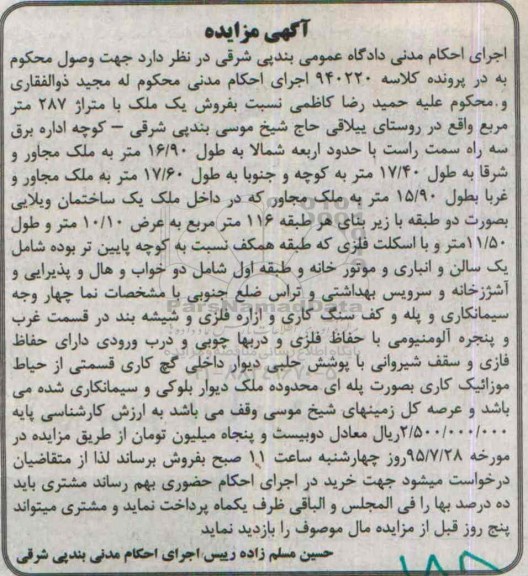 آگهی مزایده
اجرای احکام مدنی دادگاه عمومی بندپی شرقی در نظر دارد جهت وصول محکوم
به در پرونده کلاسه ۹۴۰۲۲۰ اجرای احکام مدنی محکوم له مجید ذوالفقاری
و.محکوم علیه حمید رضا کاظمی نسبت بفروش یک ملک با متراژ ۲۸۷ متر
مربع واقع در روستای ییلاقی حاج شیخ موسی بندپی شرقی – کوچه اداره برق
سه راه سمت راست با حدود اربعه شمالا به طول ۱۶/۹۰ متر به ملک مجاور و
شرقا به طول ۱۷/۴۰ متر به کوچه و جنوبا به طول ۱۷/۶۰ متر به ملک مجاور و
غربا بطول ۱۵/۹۰ متر به ملک مجاور که در داخل ملک یک ساختمان ویلایی
بصورت دو طبقه با زیر بنای هر طبقه ۱۱۶ متر مربع به عرض ۱۰/۱۰ متر و طول
۱۱/۵۰متر و با اسکلت فلزی که طبقه همکف نسبت به کوچه پایین تر بوده شامل
یک سالن و انباری و موتور خانه و طبقه اول شامل دو خواب و هال و پذیرایی و
آشژزخانه و سرویس بهداشتی و تراس ضلع جنوبی با مشخصات نما چهار وجه
سیمانکاری و پله و کف سنگ کاری و ازاره فلزی و شیشه بند در قسمت غرب
و پنجره آلومنیومی با حفاظ فلزی و دربها چوبی و درب ورودی دارای حفاظ
فازی و سقف شیروانی با پوشش حلبی دیوار داخلی گچ کاری قسمتی از حیاط
موزائیک کاری بصورت پله ای محدوده ملک دیوار بلوکی و سیمانکاری شده می
باشد و عرصه کل زمینهای شیخ موسی وقف می باشد به ارزش کارشناسی پایه
۲/۵۰۰/۰۰۰/۰۰۰ریال معادل دوبیست و پنجاه میلیون تومان از طریق مزایده در
مورخه ۹۵/۷/۲۸روز چهارشنبه ساعت ۱۱ صبح بفروش برساند لذا از متقاضیان
درخواست میشود جهت خرید در اجرای احکام حضوری بهم رساند مشتری باید
ده درصد بها را فی المجلس و الباقی ظرف یکماه پرداخت نماید و مشتری میتواند
پنج روز قبل از مزایده مال موصوف را بازدید نماید
حسین مسلم زاده رییس اجرای احکام مدنی بندپی شرقی